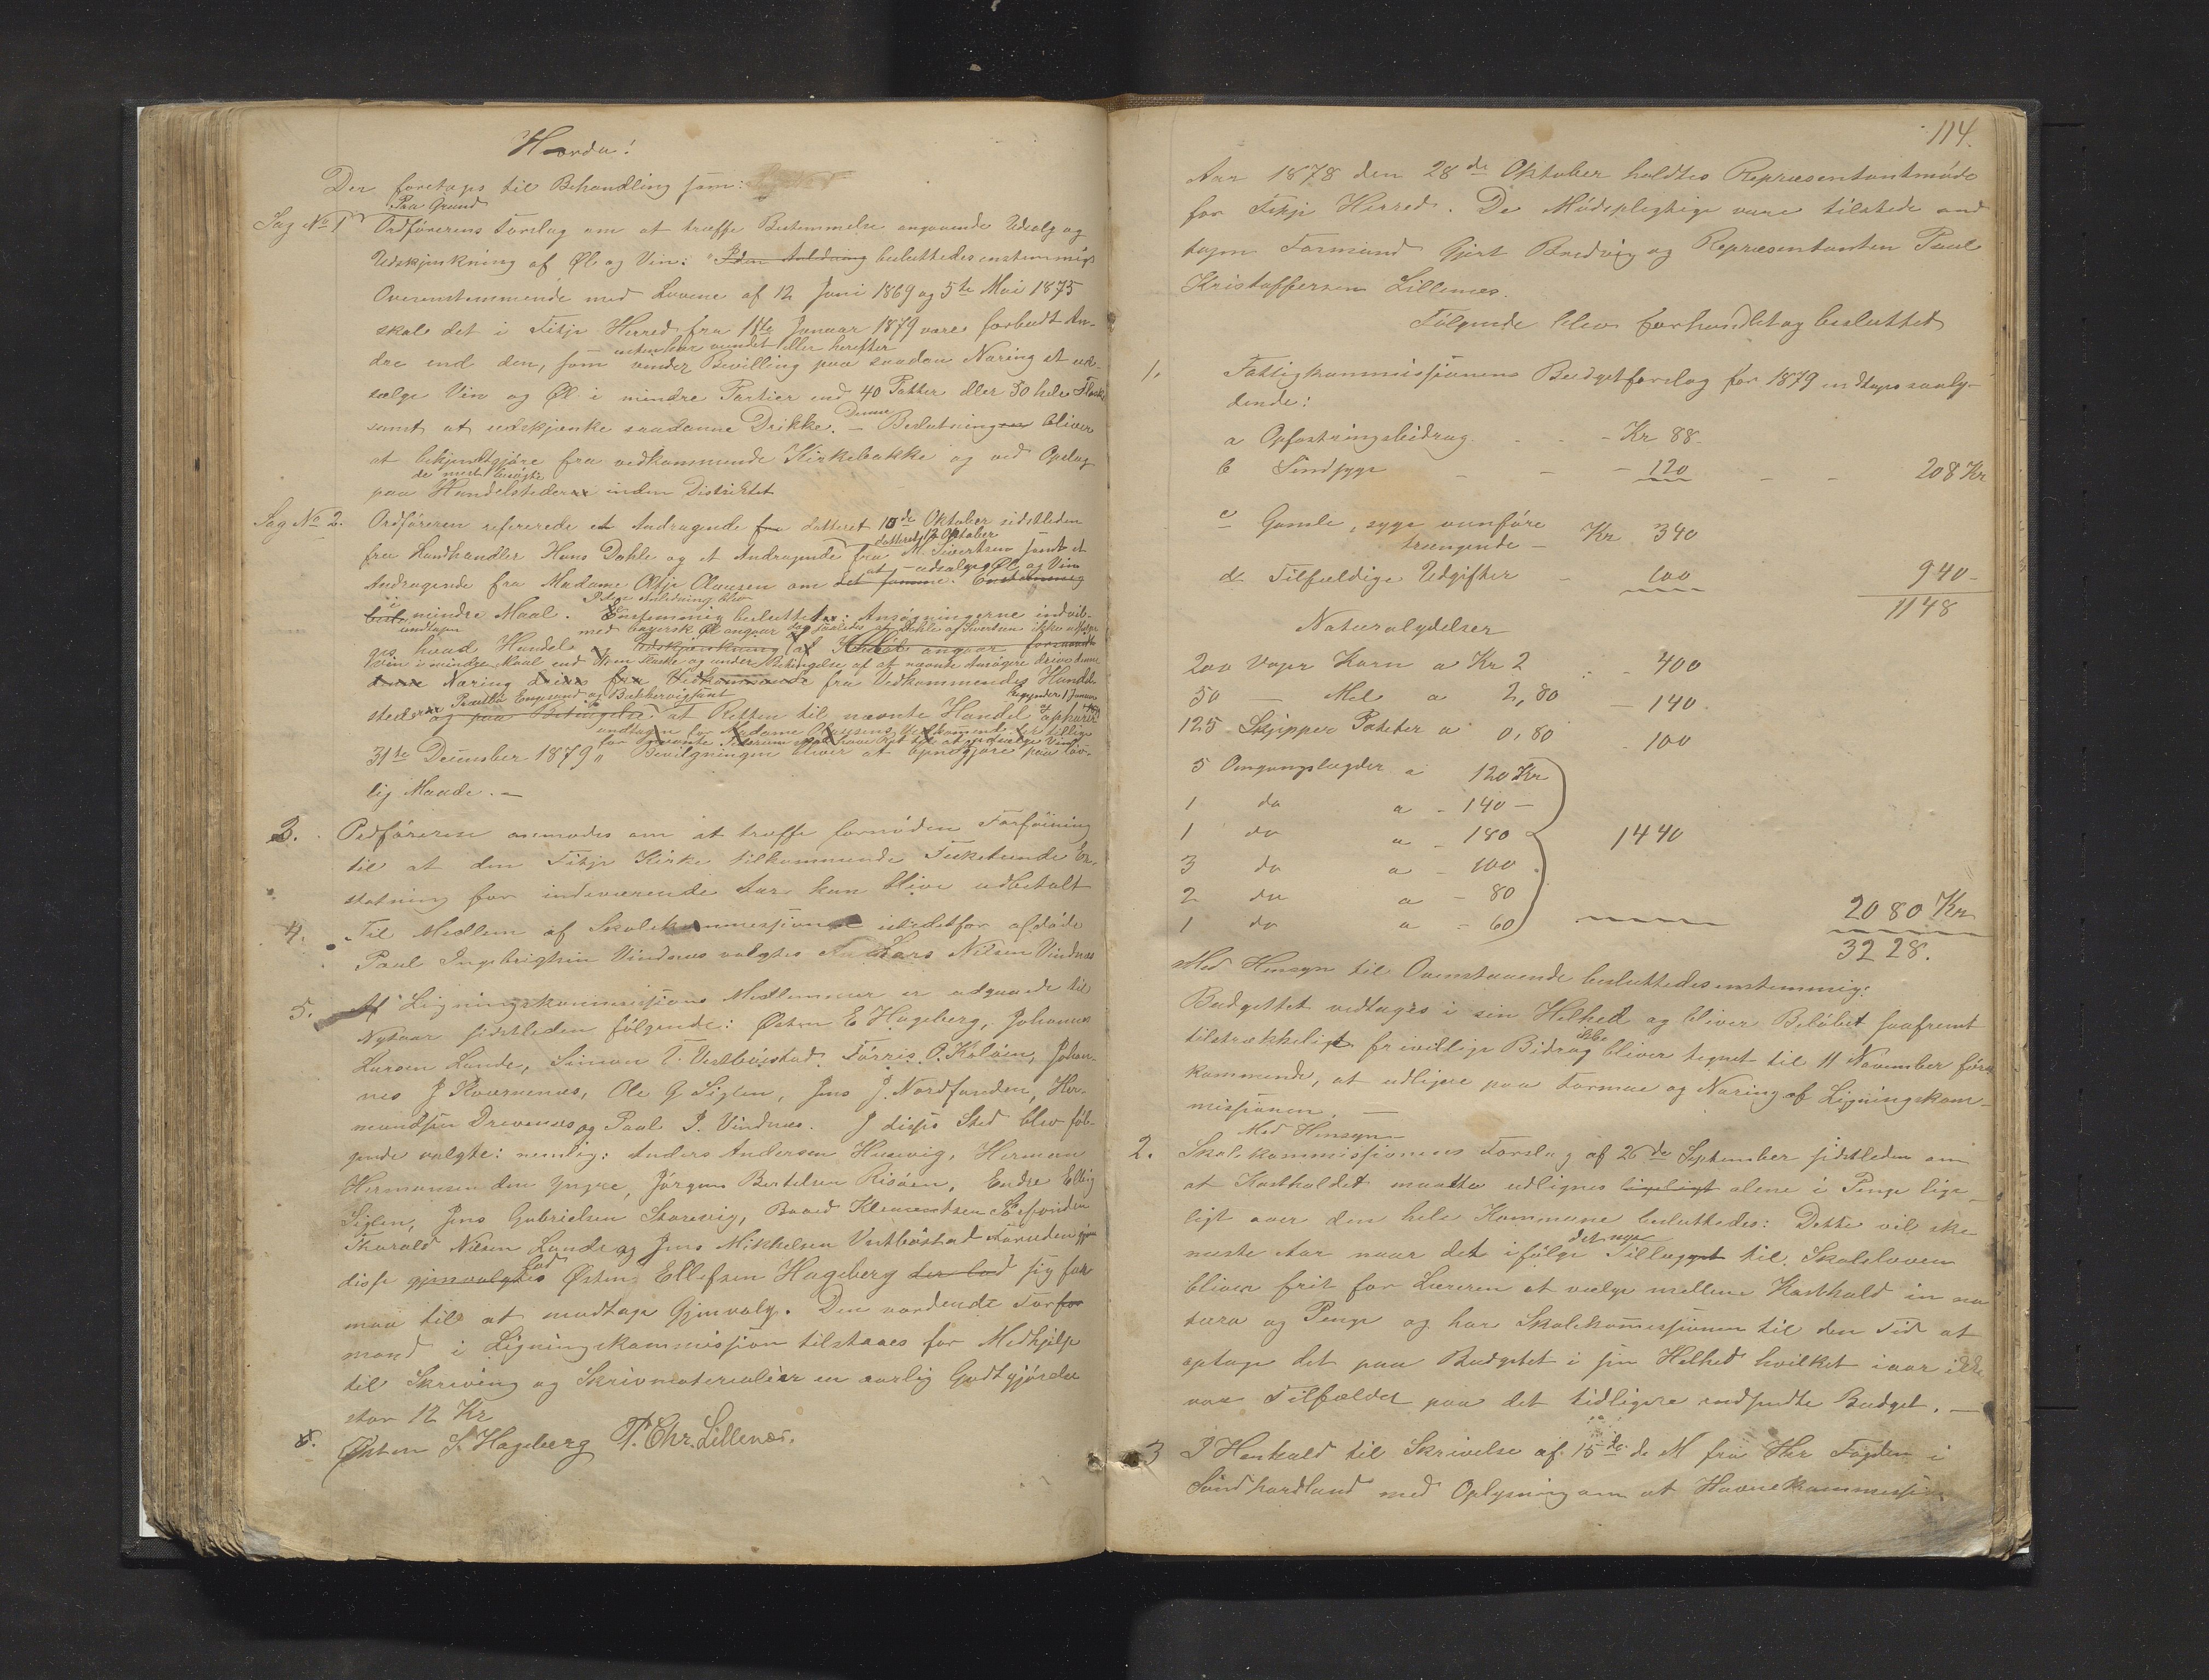 Der foretages til Behandling som:
Paa Grund
Sag No 1 Ordførerens Forslag om at træffe Bestemmelse angaaende Udsalg og
Udskjænkning af Øl og Vin: I den Anledning besluttedes enstemmigt
Overenstemmende med Lovene af 12 Juni 1869 og 5te Mai 1875
skal det i Fitje Herred fra 1ste Januar 1879 være forbudt An-
enten har vundet eller herefter
dre end den, som vinder Bevilling paa saadan Næring at ud-
sælge Vin og Øl i mindre Partier end 40 Potter eller 50 hele Flasker
samt at udskjænke saadanne Drikke. – Denne Beslutning bliver
at bekjendtgjøre fra vedkommende Kirkebakke og ved Opslag
de mest besøgte
paa Handelsteder inden Distriktet
Sag No 2. Ordføreren refererede et Andragende datteret 10de Oktober sidstleden
datteret 12 Oktober
fra Landhandler Hans Dahle og et Andragende fra M. Sivertsen samt et
at udsælge Øl og Vin
Andragende fra Madame Oltje Olausen om det samme. Enstemmig
I den Anledning blev
i mindre Maal. Enstemmig besluttet: Ansøgningerne indvil-
undtagen
med bayersk Øl angaar
ges hvad Handel og Udskjænkning af
Vin i mindre Maal end
Næring fra Vedkommendes Handel-
sted og paa Betingelse at Retten til nævnte Handel ophører
begynder 1 Januar
undtagen for Madame Olausens Vedkommende
31te December 1879 " Bevilgningen bliver at opnaagjøre paa lov-
lig Maade. –
3. Ordføreren anmodes om at træffe fornøden Forføining
til at den Fitje Kirke tilkommende Fisketiende Er-
statning for indeværende Aar kan blive udbetalt
4. Til Medlem af Skolekommissionen istedetfor afdøde
Paul Ingebrigtsen Vindenes valgtes Lars Nilsen Vindenes
5. Af Ligningskommissions Medlemmer er udgaaede til
Nytaar sidstleden følgende: Østen E Hageberg, Johannes
Larsen Lande, Simon T. Vestbøstad, Tørris O. Koløen, Johan-
nes J Kværnenes, Ole G Siglen, Jens J. Nordfonden, Her-
mundsen Drevenes og Paul P. Vindenes. I disses Sted blev føl-
gende valgte: nemlig: Anders Andersen Husevig, Herman
Hermansen den yngre, Jørgen Bertelsen Risøen, Endre Elling
Siglen, Jens Gabrielsen Storevig, Baard Klementsen Sørfonden
Thorvald Nilsen Lande og Jens Mikkelsen Vestbøstad Foruden
lod
disse gjenvalgtes Østen Ellefsen Hageberg der lod sig for-
maa til at modtage Gjenvalg. Den vordende For-
mand i Ligningskommission tilstaaes for Medhjelp
til Skriving og Skrivmaterialier en aarlig Godtgjørelse
stor 12 Kr
Østen E. Hageberg P. Chr. Lillenæs.
114.
Aar 1878 den 28de Oktober holdtes Repræsentantmøde
for Fitje Herred. De Mødepligtige vare tilstede und
tagen Formand Gjert Bredvig og Repræsentanten Paul
Kristoffersen Lillenæs.
Følgende blev forhandlet og besluttet
1. Fattigkommissionens Budgetforslag for 1879 indtages saaly-
dende:
a Opfostringsbidrag - - - Kr 88-
b Sindsyge - - - 120 - - 208 Kr
c Gamle, syge vanføre
trængende – Kr 340
d Tilfældige Udgifter - 600 940-
1148
Naturalydelser
200 Voger Korn a Kr 2 - 400
50 – Mel a 2,80 – 140
125 Skjepper Poteter a 0,80 - 100
5 Omgangslægder a 120 Kr
1 do a - 140 –
1 do a - 180 1440
3 do a - 100
2 do a - 80
1 do a - 60 2080 Kr
3228.
Med Hensyn til Ovenstaaende besluttedes enstemmig:
Budgettet vedtages i sin Helhed og bliver Beløbet saafremt
ikke
tilstrækkeligt frivillige Bidrag bliver tegnet til 11 November først
kommende, at udligne paa Formue og Næring af Ligningskom-
missionen. –
Med Hensyn
2. Skolekommissionens Forslag af 26de September sidstleden om
at Kostholdet maatte udlignes ligeligt alene i Penge lige-
ligt over den hele Kommune besluttedes: Dette vil ske
det nye
næste Aar naar det ifølge Tillægget til Skoleloven
bliver frit for Læreren at vælge mellem Kosthold in na
tura og Penge og har Skolekommissionen til den Tid at
optage det paa Budgetet i sin Helhed hvilket iaar ikke
var Tilfældet paa det tidligere indsendte Budget. –
3 I Henhold til Skrivelse af 15de d. M fra Hr Fogden i
Søndhordland med Oplysning om at Havnekommission